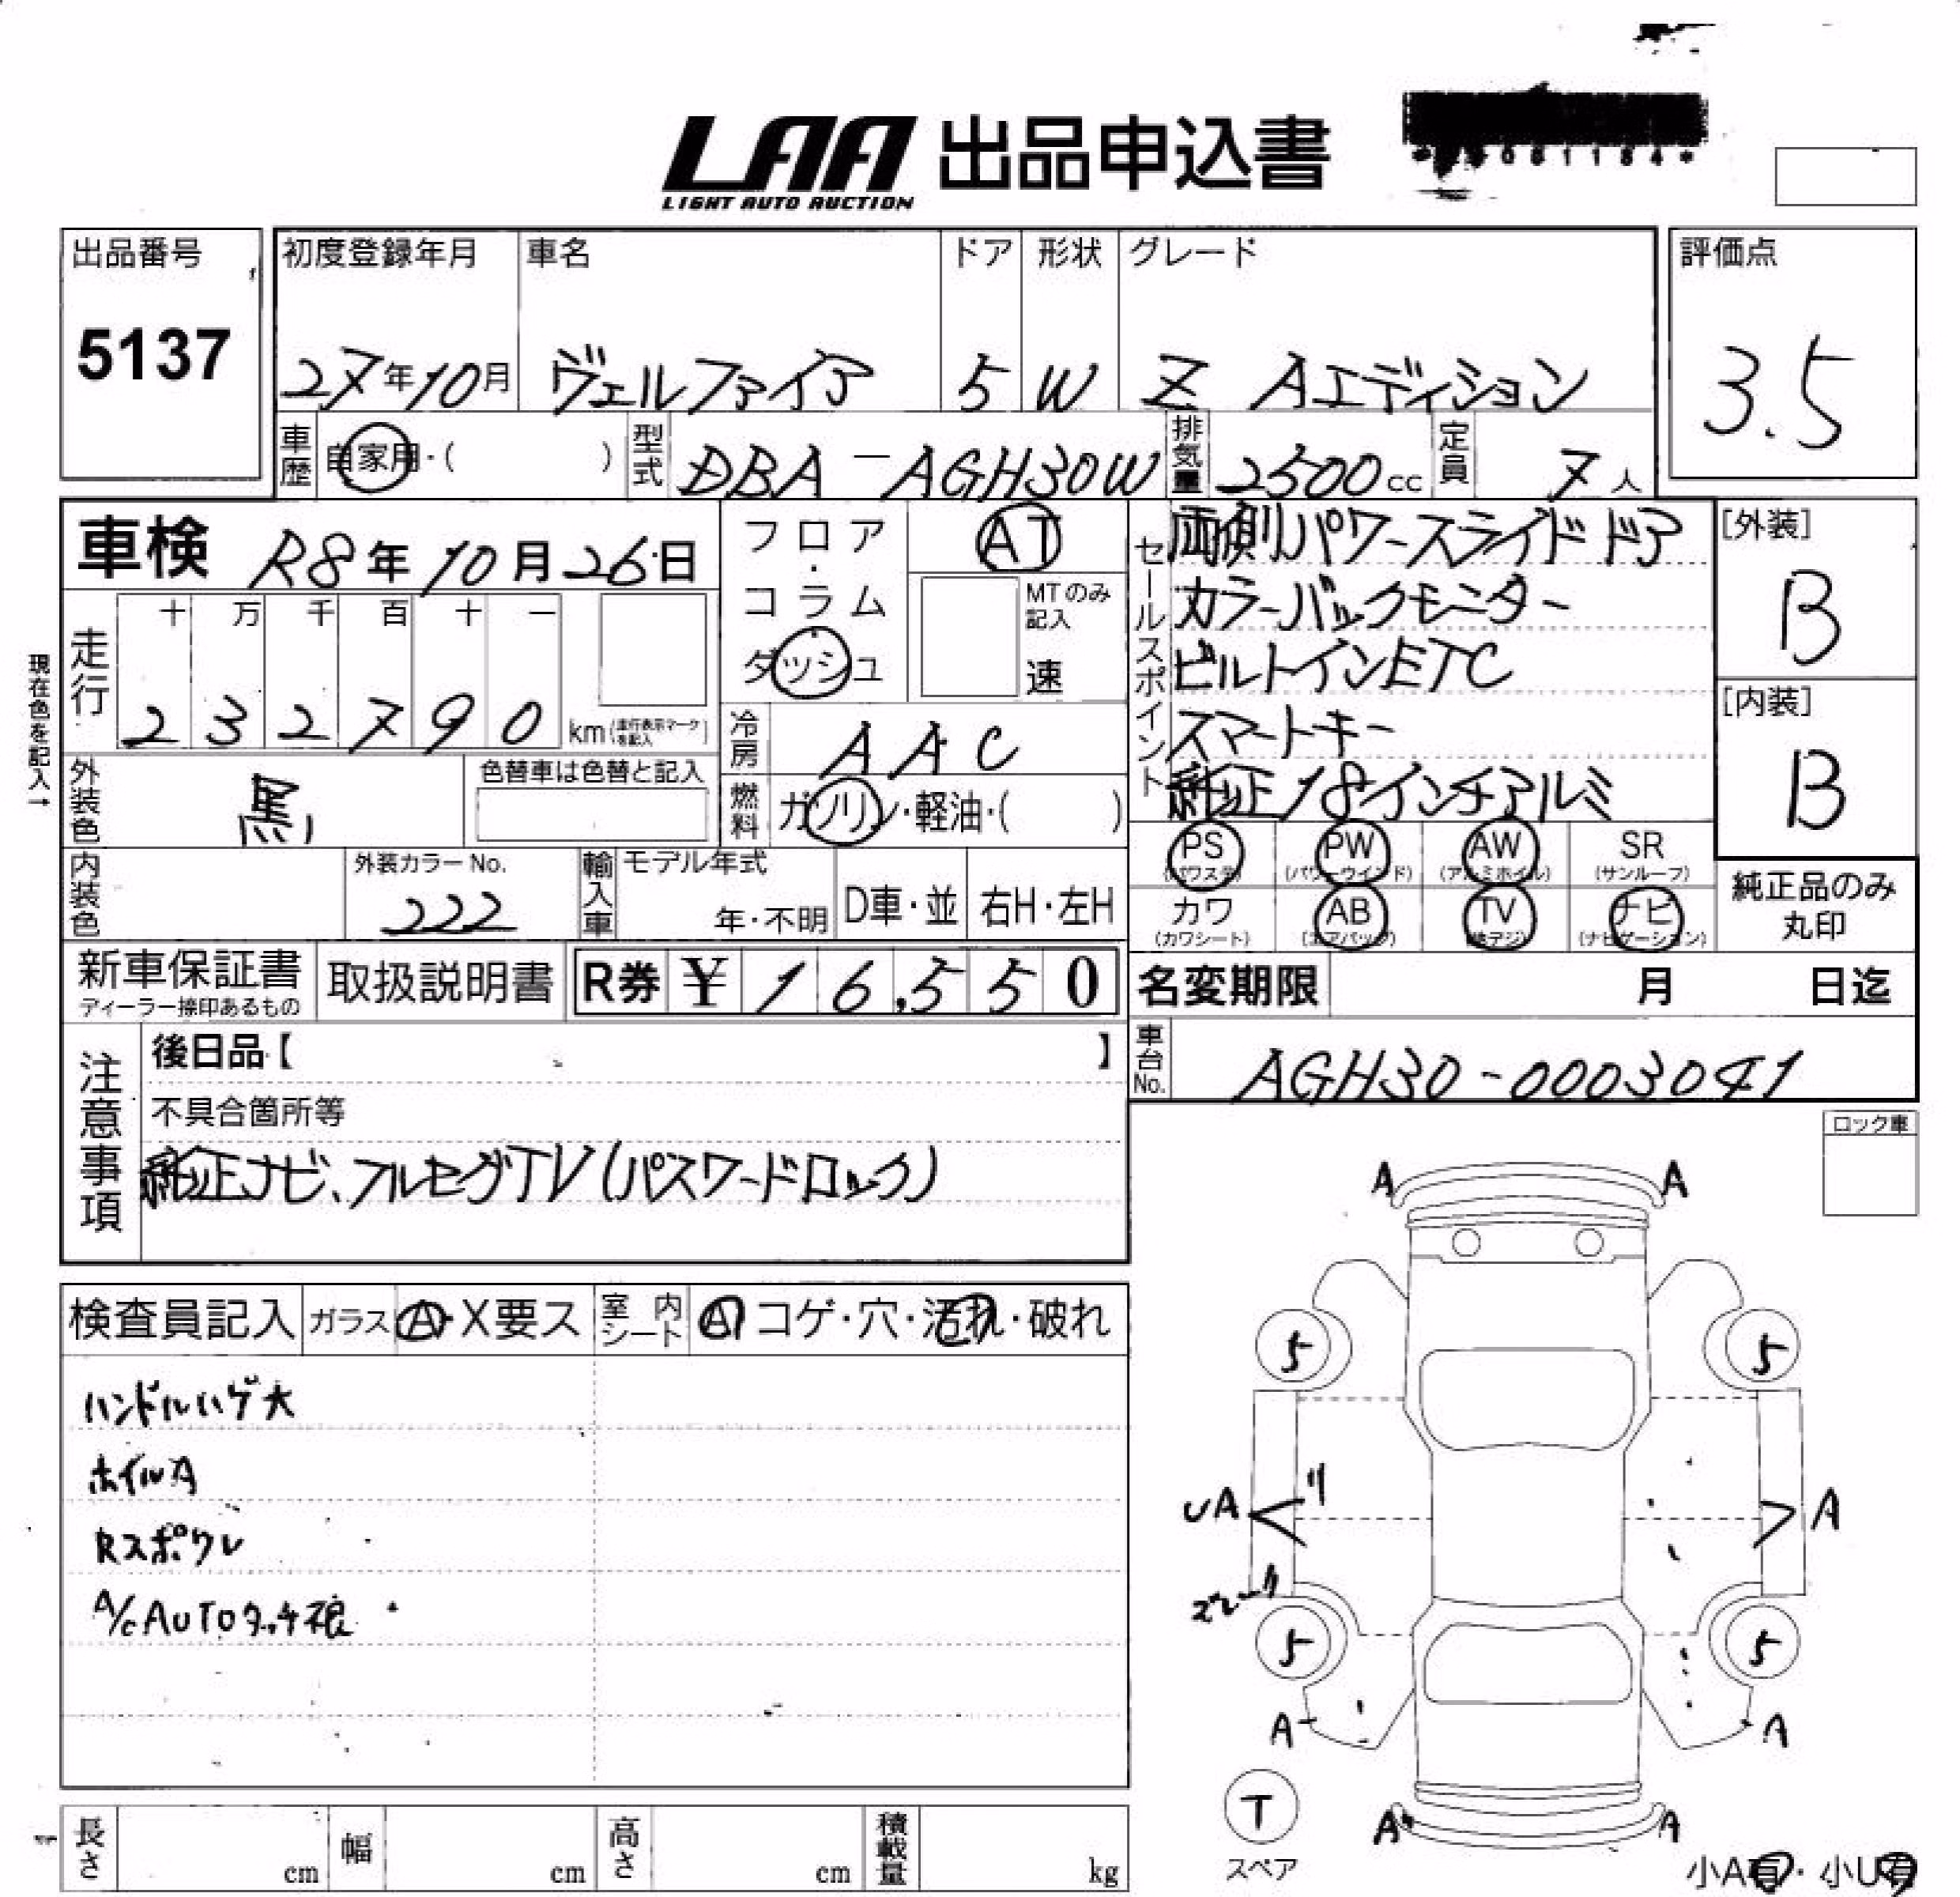 LAA 出品申込書
LIGHT AUTO AUCTION
出品番号
5137
初度登録年月
27年10月
車名
ヴェルファイア
ドア
5
形状
W
グレード
Z Aエディション
評価点
3.5
車歴
自家用・( )
型式
DBA-AGH30W
排気量
2500cc
定員
7人
車検 R8年10月26日
フロア・コラム
ダッシュ
AT
MTのみ記入
速
セールスポイント
両側パワースライドドア
カラーバックモニター
ビルトインETC
スマートキー
純正18インチアルミ
[外装]
B
[内装]
B
現在色を記入→
走行
十 万 千 百 十 一
2 3 2 7 9 0 km (走行表示マークを記入)
冷房
AAC
外装色
黒
色替車は色替と記入
燃料
ガソリン・軽油・( )
PS (パワステ)
PW (パワーウインド)
AW (アルミホイル)
SR (サンルーフ)
カワ (カワシート)
AB (エアバッグ)
TV (地デジ)
ナビ (ナビゲーション)
純正品のみ丸印
内装色
外装カラーNo.
222
輸入車
モデル年式
年・不明
D車・並
右H・左H
新車保証書
ディーラー捺印あるもの
取扱説明書
R券 ¥ 16,550
名変期限 月 日迄
車台No.
AGH30-0003041
注意事項
後日品【 】
不具合箇所等
純正ナビ、フルセグTV(パスワードロック)
ロック車
検査員記入
ガラス
A・X要ス
室内シート
A コゲ・穴・汚れ・破れ
ハンドルハゲ大
ホイルA
Rスポワレ
A/C AUTOタッチ根
A A
5 5
UA A
5 5
A A
T
スペア
A A
小A有・小U有
長さ cm
幅 cm
高さ cm
積載量 kg